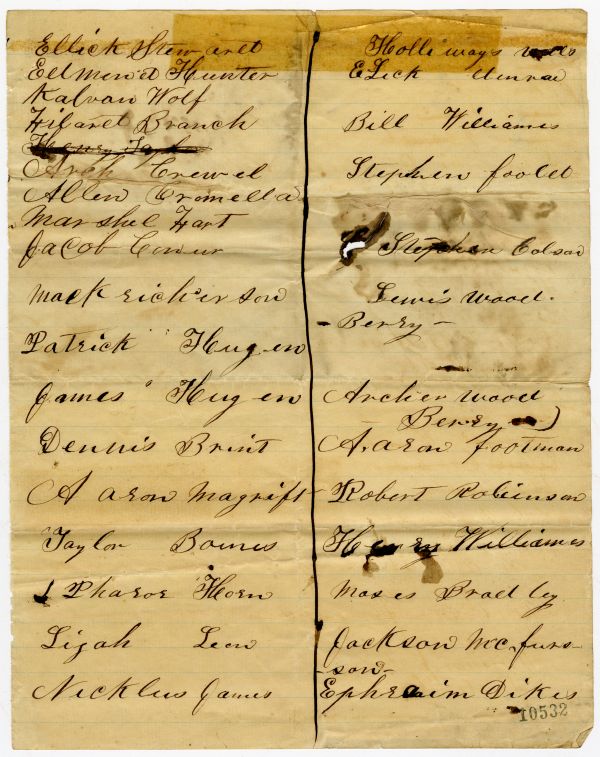 Ellick Stewaret
Edmend Hunter
Kalvan Wolf
Hibaret Branch
Henry
Arch Crewel
Allen Cromella
Marshel Hart
Jacob Conur
Mack richerson
Patrick Hugen
James Hugen
Dennis Brint
Aaron Magrift
Taylor Bornes
Pharoe Horn
Ligah Leon
Necklus James
Holliways
Elick Munroe
Bill Williames
Stephen foolet
Stephen Colson
Lewis Wood-
Berry-
Archer Wood
Berry
Aaron footman
Robert Robinson
Henry Williames
Moses Bradley
Jackson Mcfurs-
-son-
Ephraim Dikes
10532